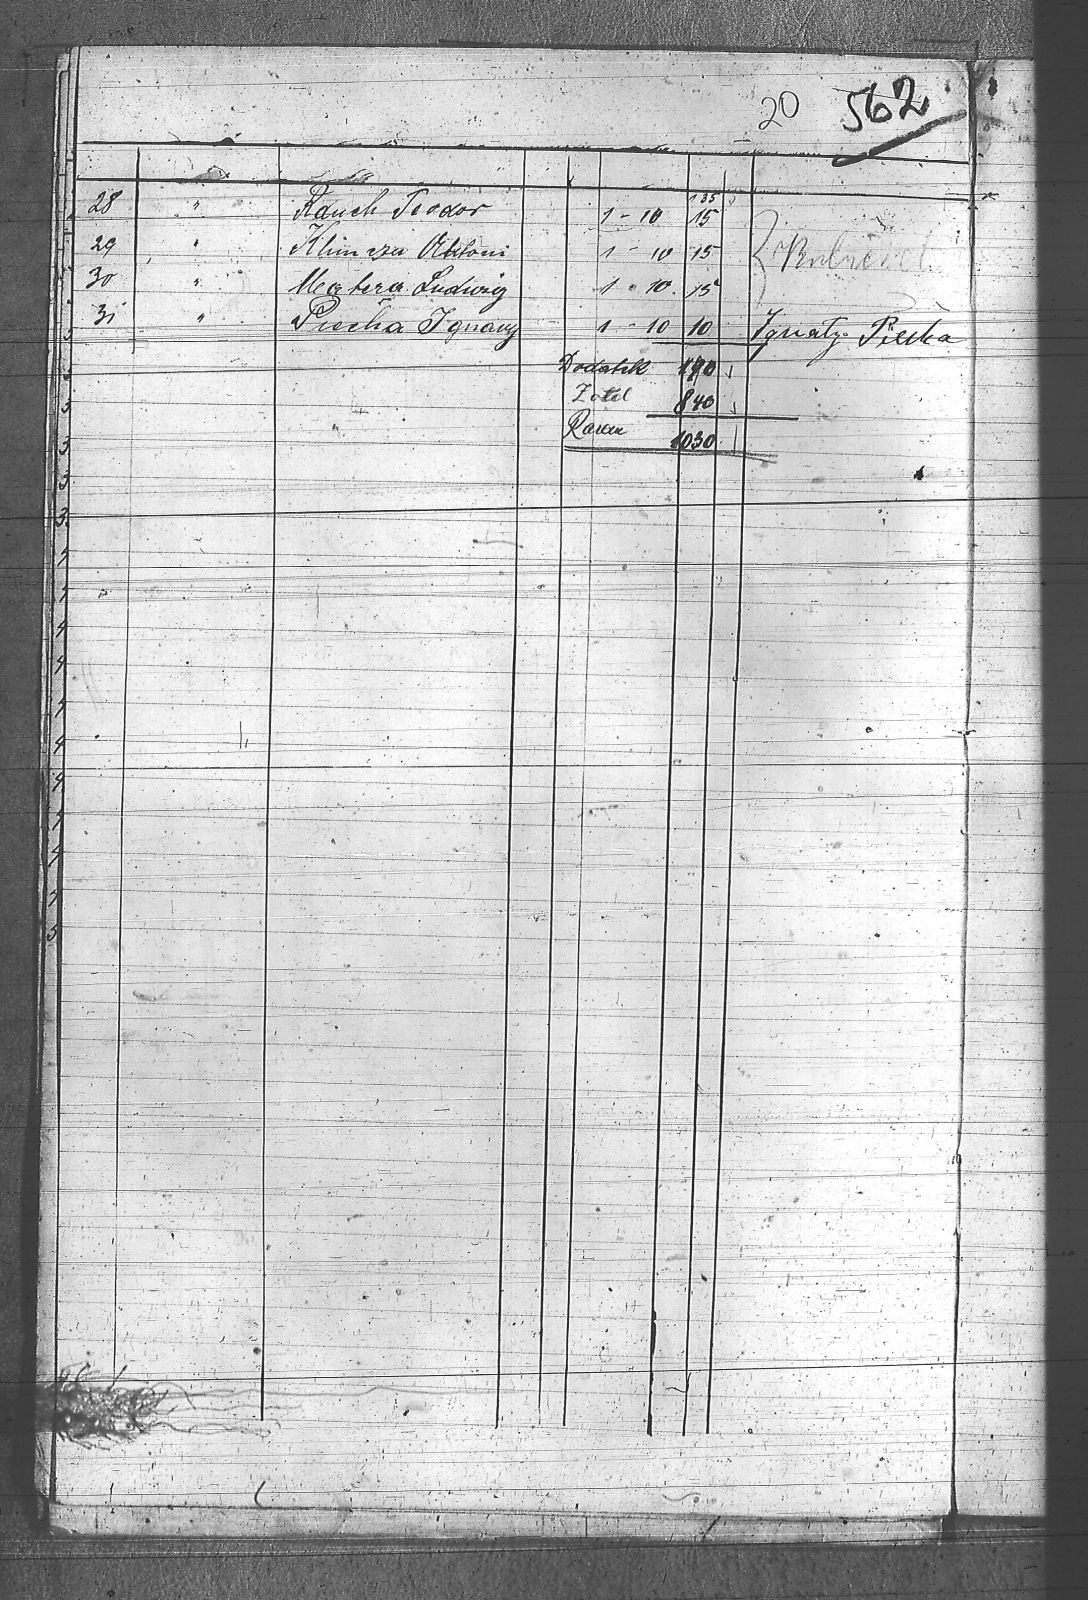 20 562
135
28 " Rauch Teodor 1 - 10 15
29 " Klimcza Antoni 1 - 10 15
30 " Matera Ludwig 1 - 10 15
31 " Piecha Ignacy 1 - 10 10 Ignatz Piecha
Dodatek 190
Żołd 840
Razem 1030